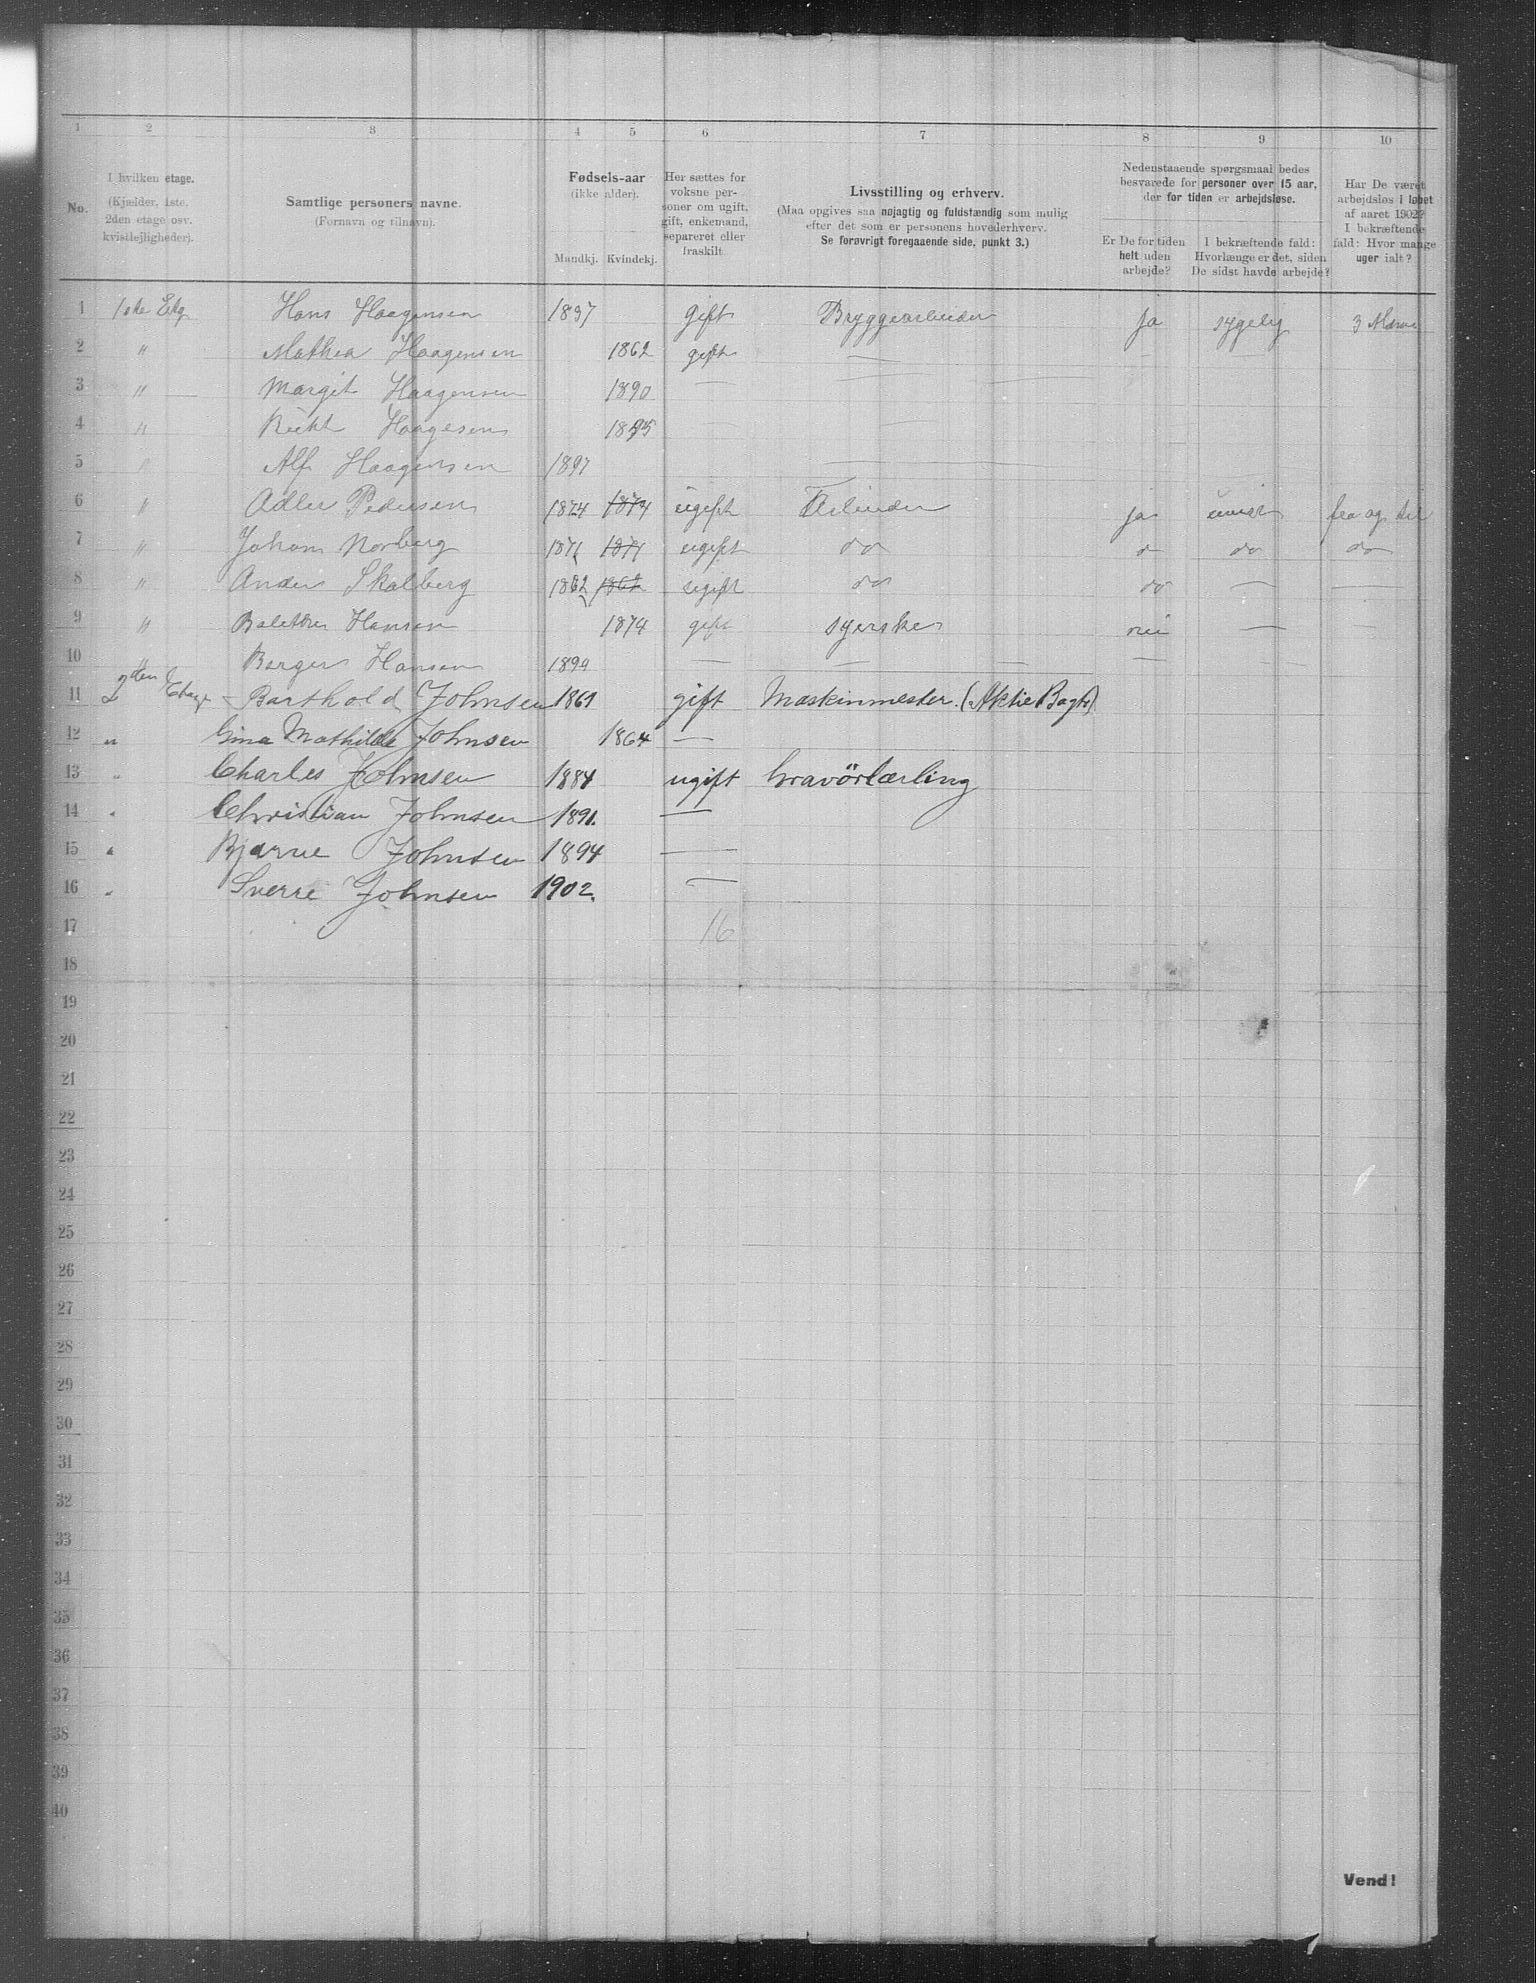 1 2 3 4 5 6 7 8 9 10
No.
I hvilken etage.
(Kjælder, 1ste.
2den etage osv.
kvistlejligheder).
Samtlige personers navne.
(Fornavn og tilnavn).
Fødsels-aar
(ikke alder).
Mandkj. Kvindekj.
Her sættes for
voksne per-
soner om ugift,
gift, enkemand,
separeret eller
fraskilt
Livsstilling og erhverv.
(Maa opgives saa nøjagtig og fuldstændig som mulig
efter det som er personens hovederhverv.
Se forøvrigt foregaaende side, punkt 3.)
Nedenstaaende spørgsmaal bedes
besvarede for personer over 15 aar,
der for tiden er arbejdsløse.
Er De for tiden
helt uden
arbejde?
I bekræftende fald:
Hvorlænge er det, siden
De sidst havde arbejde?
Har De været
arbejdsløs i løbet
af aaret 1902?
I bekræftende
fald: Hvor mange
uger ialt?
1 1ste Etg Hans Haagensen gift Bryggearbeider ja sygelig 3
2 " Mathea Haagensen 1862 gift —
3 " Margit Haagensen 1890 — —
4 " Haagesen
5 " Alf Haagensen 1897
6 " Adler Pedersen 1874 1874 ugift Arbeider ja fra og til
7 " Johan Norberg 1871 1871 ugift do do do do
8 " Anders Skalberg 1862 1862 ugift do do — —
9 " Hansen 1874 gift syerske nei — —
10 " Birger Hansen — — — — —
11 2den Etage Barthold Johnsen 1861 gift Maskinmester (Aktie Bagr)
12 " Gina Mathilde Johnsen 1864 —
13 " Charles Johnsen 1884 ugift Gravörlærling
14 " Christian Johnsen 1891. —
15 " Bjarne Johnsen 1894 —
16 " Sverre Johnsen 1902. —
17 16
18
19
20
21
22
23
24
25
26
27
28
29
30
31
32
33
34
35
36
37
38
39
40
Vend!